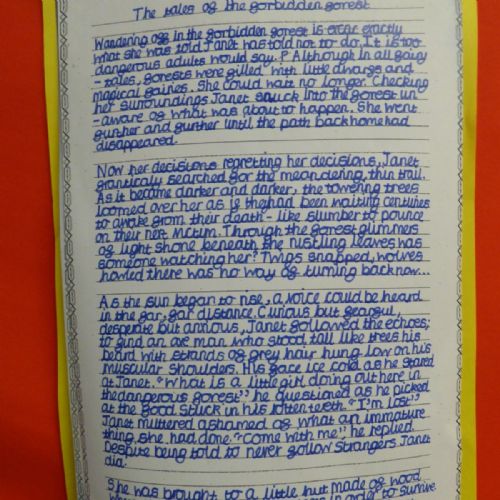 The tales of the forbidden forest
Wandering off in the forbidden forest is exactly
what she was told Janet has told not to do, It is too
dangerous adults would say. Although in all fairy
-tales, forests were filled with little dwarfs and
magical fairies. She could wait no longer. Checking
her surroundings Janet snuck into the forest un
-aware of what was about to happen. She went
further and further until the path back home had
disappeared.
Now her decisions regretting her decisions, Janet
frantically searched for the meandering, thin trail.
As it became darker and darker, the towering trees
loomed over her as if they had been waiting centuries
to awake from their death-like slumber to pounce
on their next victim. Through the forest glimmers
of light shone beneath the rustling leaves was
someone watching her? Twigs snapped, wolves
howled there was no way of turning back now...
As the sun began to rise, a voice could be heard
in the far, far distance. Curious but fearful,
desperate but anxious, Janet followed the echoes;
to find an axe man who stood tall like trees his
beard with strands of grey hair hung low on his
muscular shoulders. His face ice cold as he stared
at Janet. "What is a little girl doing out here in
the dangerous forest" he questioned as he picked
at the food stuck in his rotten teeth. "I'm lost"
Janet muttered ashamed of what an immature
thing she had done. "Come with me" he replied.
Despite being told to never follow strangers Janet
did.
She was brought to a little hut made of wood
in order to survive